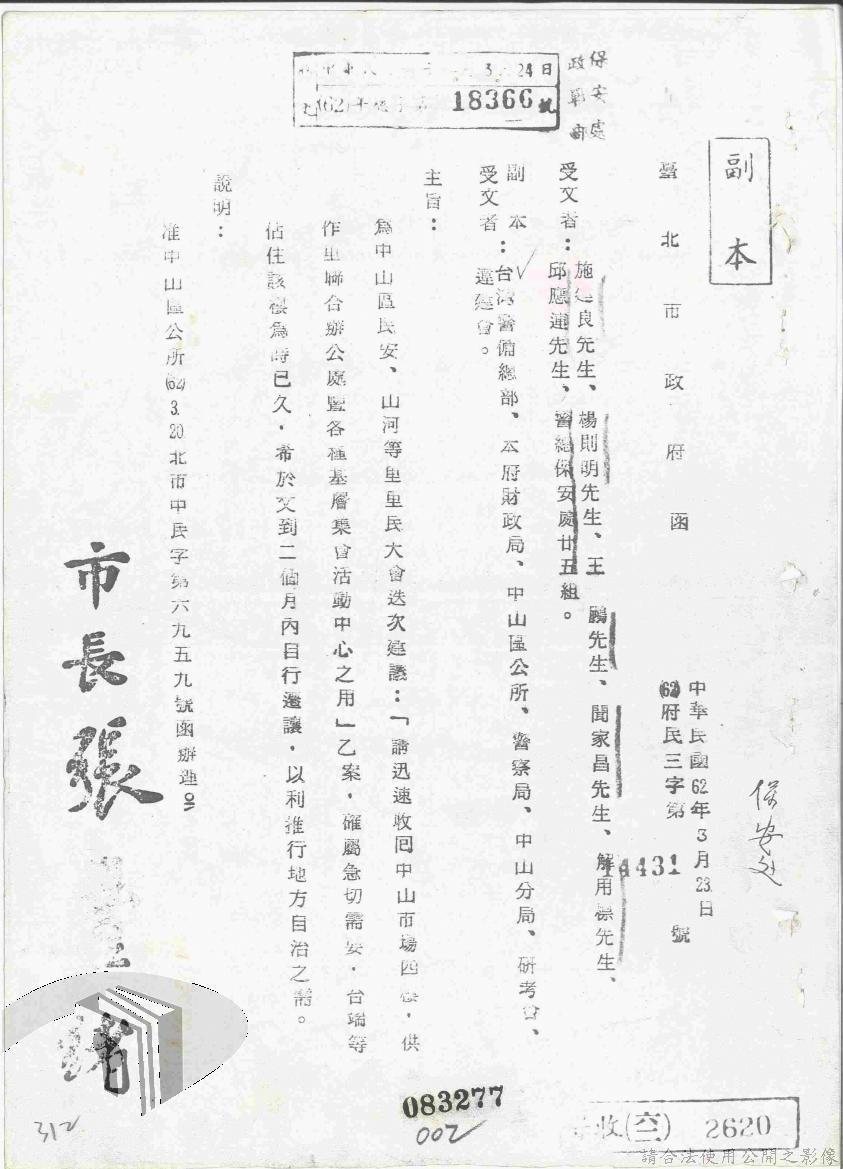 副本
臺北市政府函
中華民國62年3月23日
(62)府民三字第14431號
保安處
政戰部
3 24日
18366號
保安處
受文者：施建良先生、楊則明先生、王鵬先生、聞家昌先生、解用標先生、
邱應連先生、警總保安處廿五組。
副本
受文者：台灣警備總部、本府財政局、中山區公所、警察局、中山分局、研考會、
違建會。
主旨：
為中山區民安、山河等里里民大會迭次建議：「請迅速收回中山市場四樓，供
作里聯合辦公處暨各種基層集會活動中心之用」乙案，確屬急切需要，台端等
佔住該樓為時已久，希於文到二個月內自行遷讓，以利推行地方自治之需。
說明：
准中山區公所(62)3.20北市中民字第六九五九號函辦理。
市長張
083277
002
312
收(六二) 2620
請合法使用公開之影像